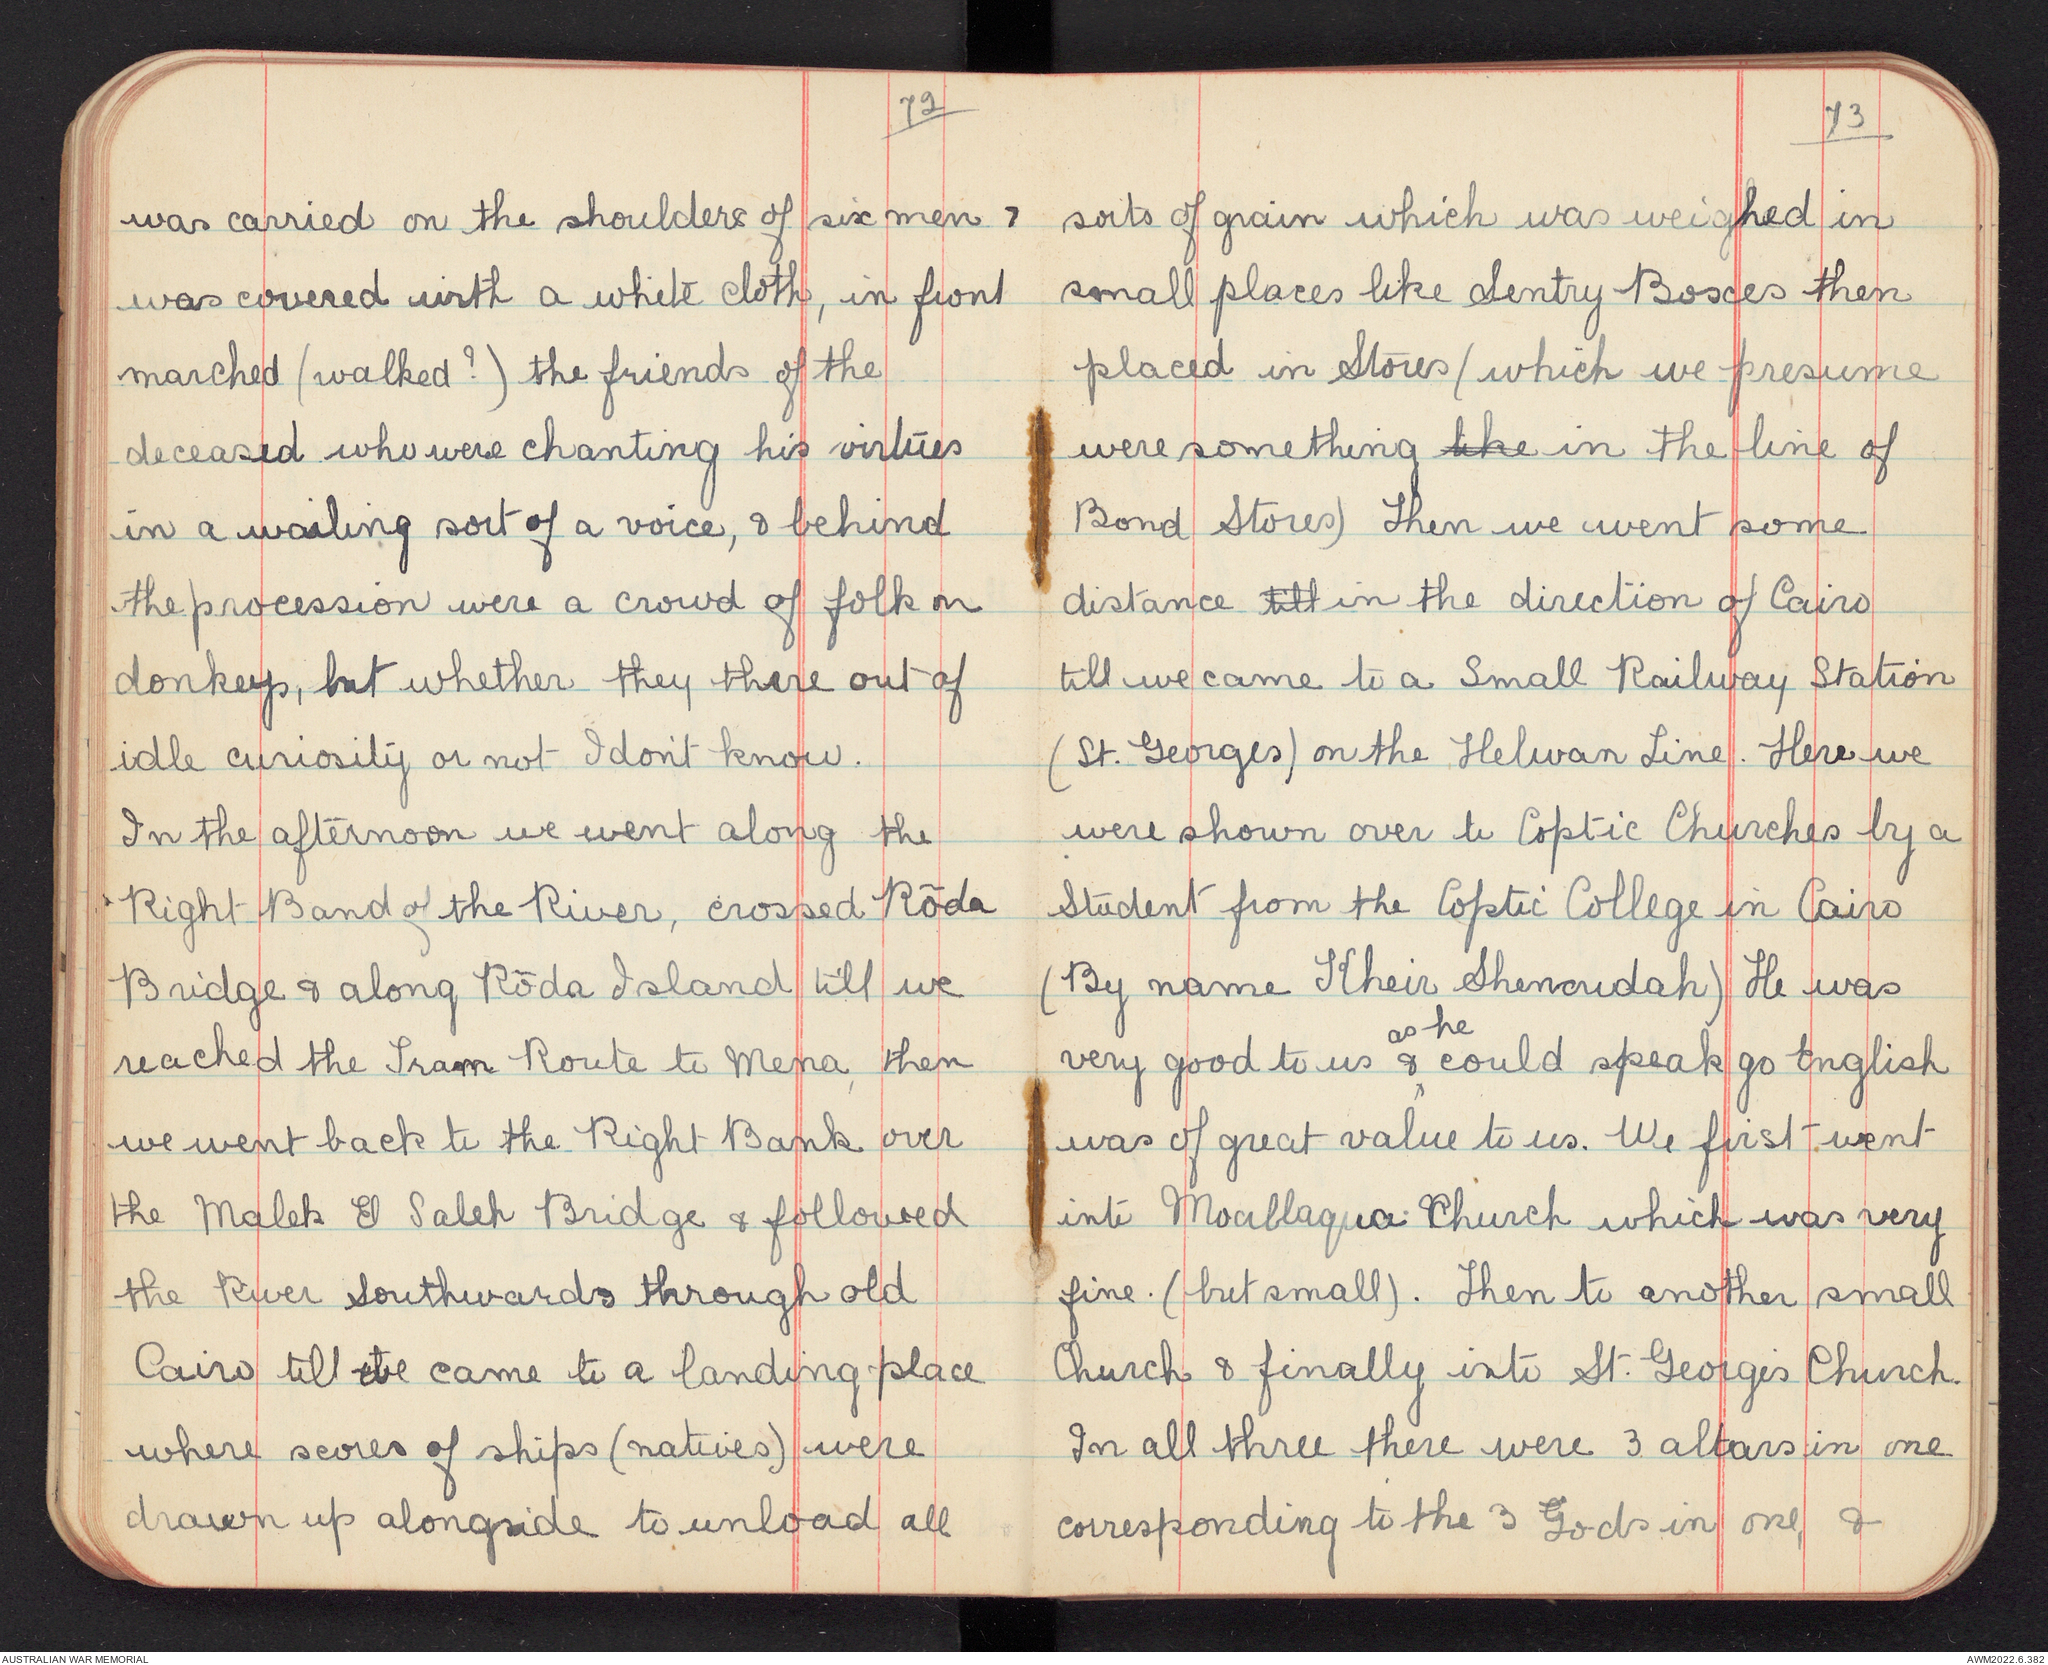 72
was carried on the shoulders of six men &
was covered with a white cloth, in front
marched (walked?) the friends of the
deceased who were chanting his virtues
in a wailing sort of a voice, & behind
the procession were a crowd of folk on
donkeys, but whether they there out of
idle curiosity or not I don't know.
In the afternoon we went along the
Right Band of the River, crossed Rōda
Bridge & along Rōda Island till we
reached the Tram Route to Mena, then
we went back to the Right Bank over
the Malek El Saleh Bridge & followed
the River Southwards through old
Cairo till we came to a landing-place
where scores of ships (natives) were
drawn up alongside to unload all
73
sorts of grain which was weighed in
small places like Sentry Boxes then
placed in Stores (which we presume
were something like in the line of
Bond Stores) Then we went some
distance till in the direction of Cairo
till we came to a Small Railway Station
(St. Georges) on the Helwan Line. Here we
were shown over to Coptic Churches by a
Student from the Coptic College in Cairo
(By name Kheir Shenoudah) He was
as he
very good to us & could speak go English
was of great value to us. We first went
into Moallaqua Church which was very
fine. (but small). Then to another small
Church & finally into St. George's Church.
In all three there were 3 altars in one
corresponding to the 3 Gods in one, &
AUSTRALIAN WAR MEMORIAL
AWM2022.6.382